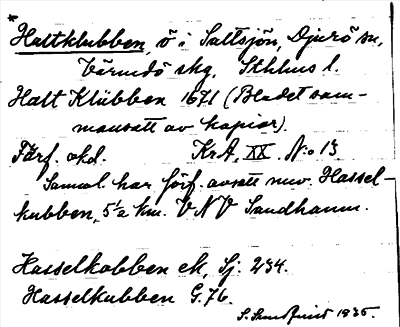 * Hattklubben, ö i Saltsjön, Djurö sn,
Värmdö skg, Sthlms l.
Hatt Klübben 1671 (Bladet sam-
mansatt av kopior).
Förf. okd. KrA, XX. N:o 13.
Samol. har förf. avsatt nuv. Hassel-
kubben, 5 1/2 km. VNV Sandhamn.
Hasselkobben ek, Sj. 234.
Hasselkubben G. 76.
1935.